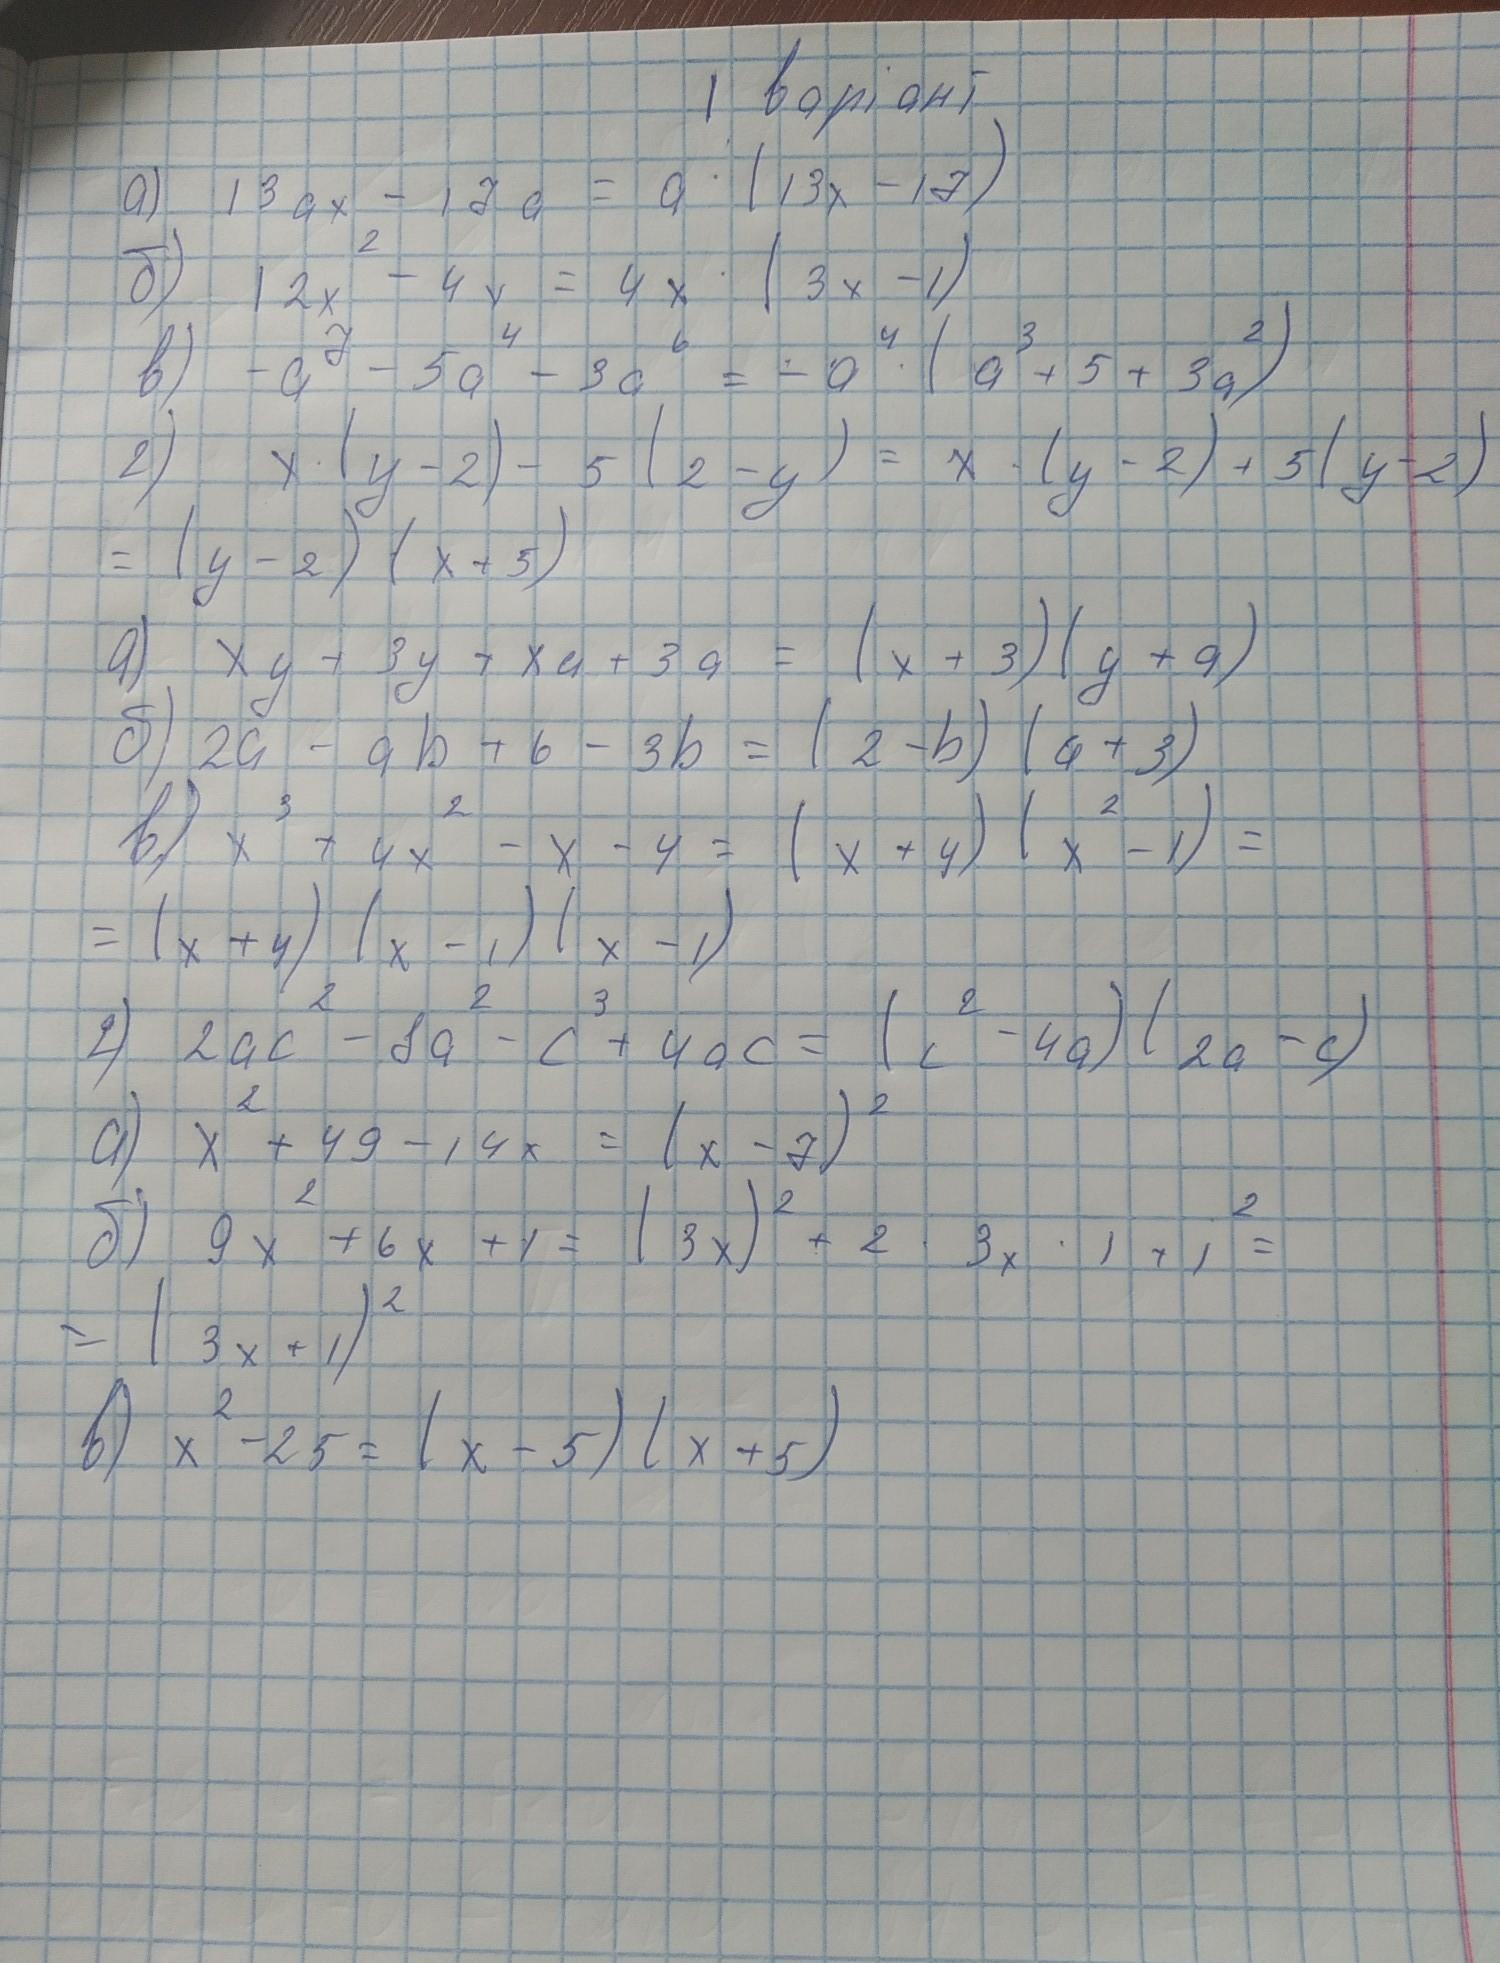 1 варіант
а) 13ax - 17a = a · (13x - 17)
б) 12x² - 4x = 4x · (3x - 1)
в) -a⁷ - 5a⁴ - 3a⁶ = -a⁴ · (a³ + 5 + 3a²)
г) x · (y - 2) - 5(2 - y) = x · (y - 2) + 5(y - 2)
= (y - 2)(x + 5)
а) xy + 3y + xa + 3a = (x + 3)(y + a)
б) 2a - ab + 6 - 3b = (2 - b)(a + 3)
в) x³ + 4x² - x - 4 = (x + 4)(x² - 1) =
= (x + 4)(x - 1)(x - 1)
г) 2ac² - 8a² - c³ + 4ac = (c² - 4a)(2a - c)
а) x² + 49 - 14x = (x - 7)²
б) 9x² + 6x + 1 = (3x)² + 2 · 3x · 1 + 1² =
= (3x + 1)²
в) x² - 25 = (x - 5)(x + 5)